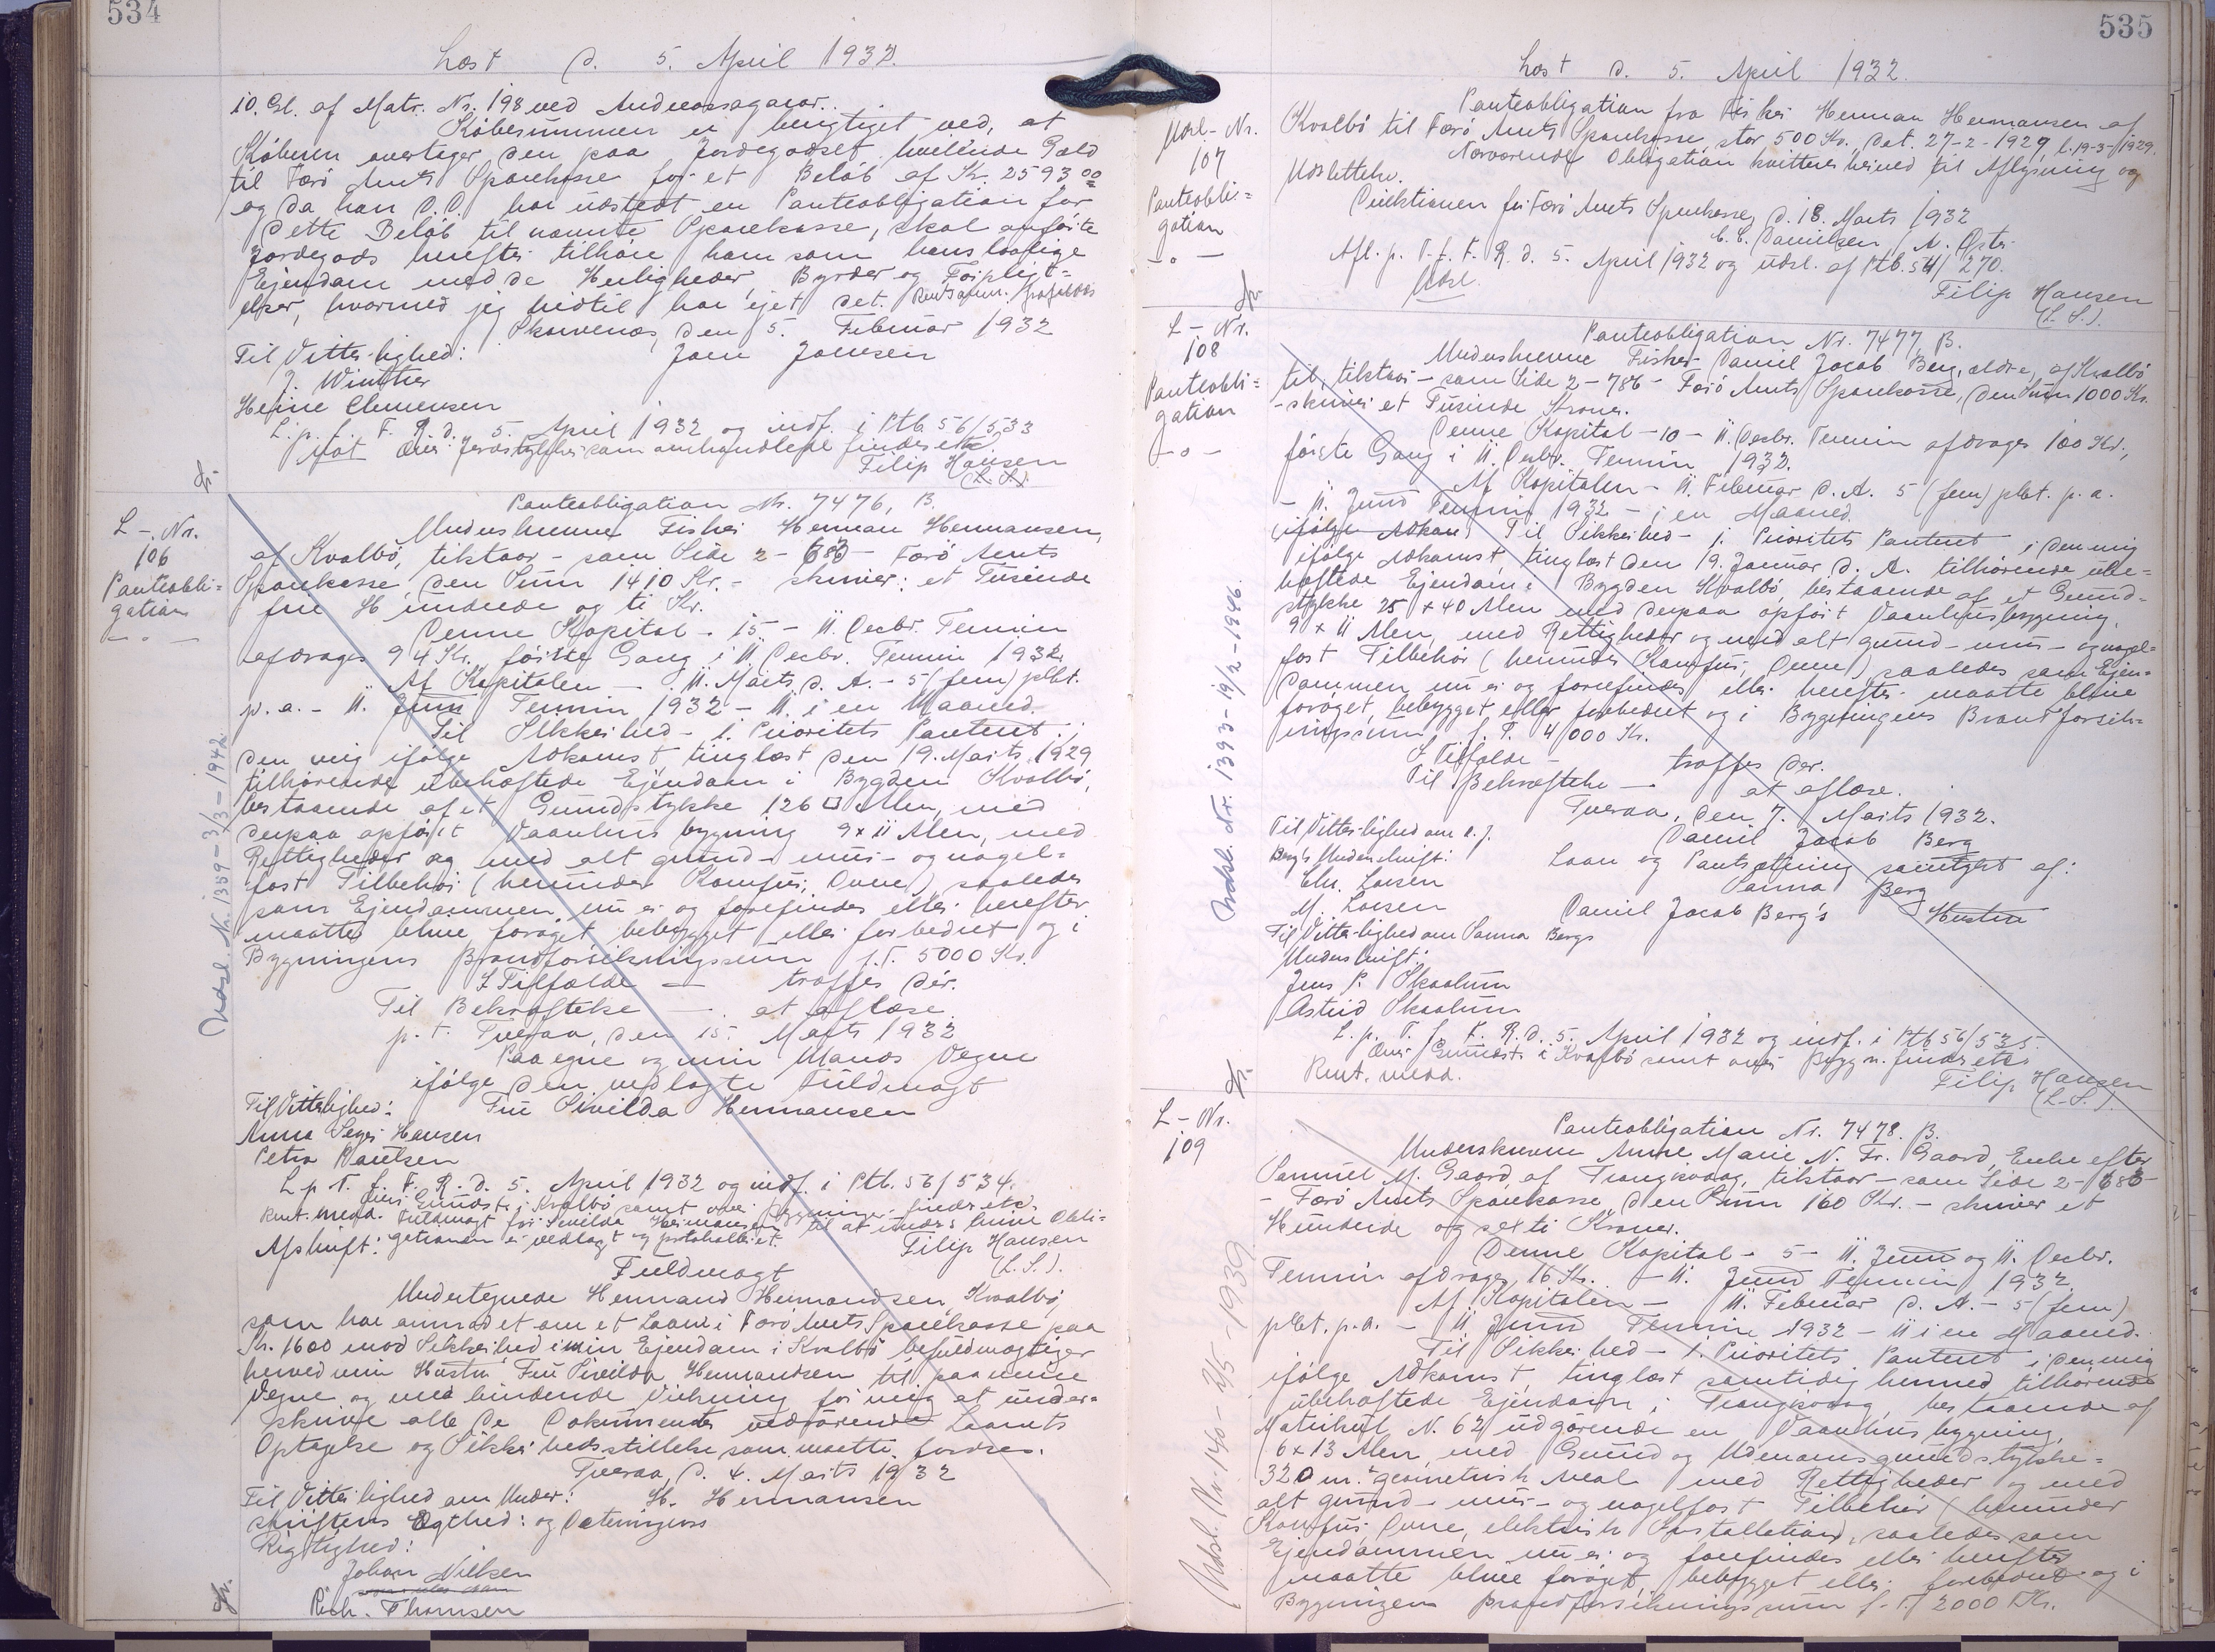 534
Læst d. 5. April 1932.
10. Gl. af Matr. Nr. 198 ved Andreasagarar.
Købesummen er berigtiget ved, at
Køberen overtager den paa Jordegodset hvilende Gæld
til Færø Amts Sparekasse for et Beløb af Kr. 2593 00
og da han d.D. har udstedt en Panteobligation for
dette Beløb til nævnte Sparekasse, skal anførte
Jordegods herefter tilhøre ham som hans lovlige
Ejendom med de Herligheder, Byrder og Forpligt=
elser, hvormed jeg hidtil har ejet det.
Skarvenes, den 5. Februar 1932
Til Vitterlighed: Joen Joensen
J. Winther
Heine Clemensen
L. p. T. f. F. R. d. 5. April 1932 og indf. i Ptb. 56/533
Filip Hansen
(L.S.)
L.-Nr.
106
Panteobli=
gation
- " -
Udsl. Nr. 1359 - 3/3 - 1942.
Panteobligation Nr. 7476, B.
Underskrevne Fisker Herman Hermansen,
af Kvalbø, tilstaar - som Side 2 - 686 - Færø Amts
Sparekasse, den Sum 1410 Kr. - skriver: et Tusinde
fire Hundrede og ti Kr.
Denne Kapital - 15 - 11. Decbr. Termin
afdrages 94 Kr. første Gang i 11 Decbr. Termin 1932.
Af Kapitalen - 11. Marts d. A. - 5 (fem) pCt.
p.a. - 11. Juni Termin 1932 - 11. i en Maaned.
Til Sikkerhed - 1. Prioritets Panteret i
den mig ifølge Adkomst, tinglæst den 19. Marts 1929
tilhørende ubehæftede Ejendom i Bygden Kvalbø,
bestaaende af et Grundstykke 126 □ Alen, med
derpaa opført Vaaningsbygning 9 x 11 Alen, med
Rettigheder og med alt grund- mur- og nagel=
fast Tilbehør (herunder Komfur, Ovne) saaledes
som Ejendommen nu er og forefindes eller herefter
maatte blive forøget, bebygget eller forbedret og i
Bygningens Brandforsikringssum p.T. 5000 Kr.
I Tilfælde - træffes der.
Til Bekræftelse - at aflæse.
p.t. Tveraa, den 15. Marts 1932
Paa egne og min Mands Vegne
ifølge den vedlagte Fuldmagt
Til Vitterlighed: Fru Sivilda Hermansen
Anna Hansen
Petra Poulsen
L. p. T. f. F. R. d. 5. April 1932 og indf. i Ptb. 56/534.
Over Grundst. i Kvalbø samt over Bygninger findes etc.
Rent. medd. Fuldmagt for Sivilda Hermansen til at underskr. denne Obli=
Afskrift: gationen er vedlagt og protokolleret. Filip Hansen
(L.S.).
Fuldmagt
Undertegnede Hermand Hermandsen, Kvalbø,
som har anmodet om et Laan i Færø Amts Sparekasse paa
Kr. 1600 mod Sikkerhed i min Ejendom i Kvalbø befuldmægtiger
herved min Hustru Fru Sivilda Hermandsen til paa mine
Vegne og med bindende Virkning for mig at under=
skrive alle de Dokumenter vedrørende Laanets
Optagelse og Sikkerhedsstillelse som maatte fordres.
Tveraa, d. 4. Marts 1932
Til Vitterlighed om Under: H. Hermansen
skriftens Ægthed: og Dateringens
Rigtighed:
Johan Nielsen
Rich. Thomsen
535
Læst d. 5. April 1932.
Udsl.- Nr.
107
Panteobli=
gation
- " -
Panteobligation fra Fisker Herman Hermansen af
Kvalbø til Færø Amts Sparekasse, stor 500 Kr., dat. 27-2-1929, l. 19-3-1929.
Nærværende Obligation kvitteres herved til Aflysning og
Udslettelse.
Direktionen for Færø Amts Sparekasse, d. 18. Marts 1932
C. C. Danielsen,
Afl. p. T. f. F. R. d. 5. April 1932 og udsl. af Ptb. 54/270.
Udsl. Filip Hansen
(L.S.).
L-.Nr.
108
Panteobli=
gation
- " -
Udsl. Nr. 1393 - 19/2 - 1946.
Panteobligation Nr. 7477, B.
Underskrevne Fisker Daniel Jacob Berg, ældre, af Kvalbø
til, tilstaar - som Side 2 - 786 - Færø Amts Sparekasse, den Sum 1000 Kr.
- skriver et Tusinde Kroner.
Denne Kapital - 10 - 11. Decbr. Termin afdrages 100 Kr.,
første Gang i 11. Decbr. Termin 1932.
Af Kapitalen - 11. Februar d. A. 5 (fem) pCt. p.a.
- 11. Juni Termin 1932 - i en Maaned.
Til Sikkerhed - 1. Prioritets Panteret i den mig
ifølge Adkomst, tinglæst den 19. Januar d. A. tilhørende ube=
hæftede Ejendom i Bygden Kvalbø, bestaaende af et Grund=
stykke 25 x 40 Alen med derpaa opført Vaanhusbygning,
9 x 11 Alen, med Rettigheder og med alt grund- mur- og nagel=
fast Tilbehør (herunder Komfur, Ovne) saaledes som Ejen=
dommen nu er og forefindes eller herefter maatte blive
forøget, bebygget eller forbedret og i Bygningens Brandforsik=
ringssum p. T. 4000 Kr.
I Tilfælde - træffes der.
Til Bekræftelse - at aflæse.
Tveraa, den 7. Marts 1932.
Til Vitterlighed om D. J. Daniel Jacob Berg
Berg's Underskrift: Laan og Pantsætning samtykt af:
Chr. Larsen Sanna Berg
M. Larsen Daniel Jacob Berg's Hustru
Til Vitterlighed om Sanna Bergs
Underskrift:
Jens P. Skaalum
Astrid Skaalum
L. p. T. f. F. R. d. 5. April 1932 og indf. i Ptb 56/535.
Over Grundst. i Kvalbø samt over Bygn. findes etc
Rent. medd. Filip Hansen
(L.S.).
L-.Nr.
109
Udsl. Nr. 140 - 2/5 - 1939
Panteobligation Nr. 7478. B.
Underskrevne Anne Marie N. Fr. Gaard, Enke efter
Samuel M. Gaard, af Trangisvaag, tilstaar - som Side 2 - 686
- Færø Amts Sparekasse, den Sum 160 Kr. - skriver et
Hundrede og sexti Kroner.
Denne Kapital - 5 - 11. Juni og 11. Decbr.
Termin afdrages 16 Kr. - 11. Juni Termin 1932
Af Kapitalen - 11. Februar d. A. - 5 (fem)
pCt. p.a. - 11 Juni Termin 1932 - 11 i en Maaned.
Til Sikkerhed - 1. Prioritets Panteret i den mig
ifølge Adkomst, tinglæst samtidig hermed tilhørende
ubehæftede Ejendom i Trangisvaag, bestaaende af
Matrikul N. 62 udgørende en Vaanhusbygning,
6 x 13 Alen, med Grund og Udenomsgrundstykke=
320 m.² geometrisk Maal med Rettigheder og med
alt grund- mur- og nagelfast Tilbehør (herunder
Komfur, Ovne, elektrisk Installation), saaledes som
Ejendommen nu er og forefindes eller herefter
maatte blive forøget, bebygget eller forbedret og i
Bygningens Brandforsikringssum p.T. 2000 Kr.